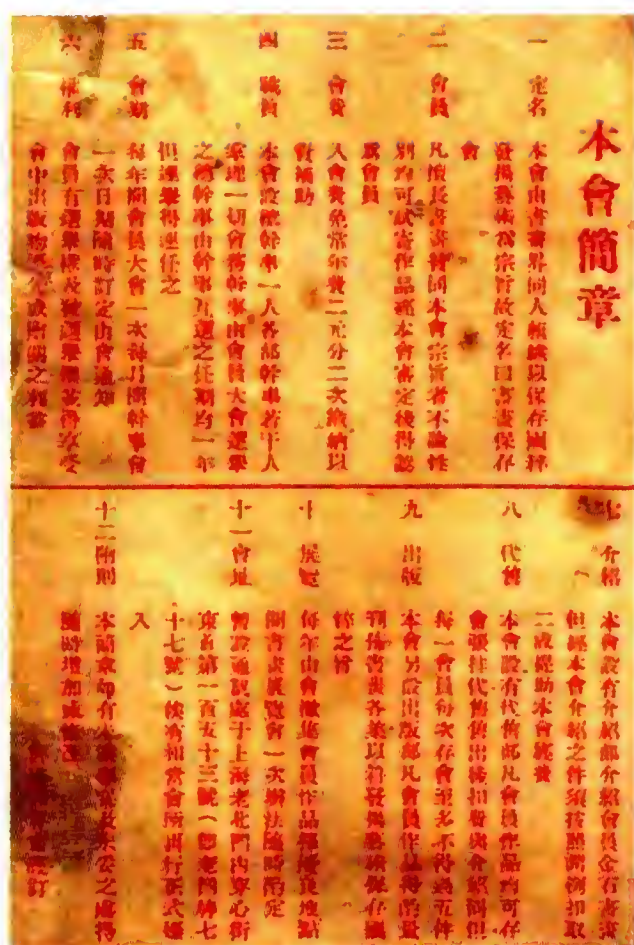 本會簡章
一 定名
本會由書畫界同人組織以保存國粹
發揚藝術為宗旨故定名曰書畫保存
會
二 會員
凡擅長書畫贊同本會宗旨者不論性
別均可試寄作品經本會審定後得認
為會員
三 會費
入會費免常年費二元分二次繳納以
資補助
四 職員
本會設總幹事一人各部幹事若干人
處理一切會務幹事由會員大會選舉
之總幹事由幹事互選之任期均一年
但連舉得連任之
五 會期
每年開會員大會一次每月開幹事會
一次日期隨時訂定由會通知
六 權利
會員有選舉權及被選舉權並得享受
會中出版物
之利益
七 介紹
本會設有介紹部介紹會員金石書畫
但經本會介紹之件須按照潤例扣取
二成補助本會經費
八 代售
本會設有代售部凡會員作品均可存
會張挂代售售出後扣費與介紹同但
每一會員每次存會至多不得過五件
九 出版
本會另設出版部凡會員作品得酌量
刊
各業以符發揚藝術保存國
粹之旨
十 展覽
每年由會徵集會員作品擇適宜地點
開書畫展覽會一次辦法臨時酌定
十一 會址
暫設通訊處于上海老北門內穿心街
東首第一百五十三號(即老門牌七
十七號)俟覓相當會所再行正式遷
入
十二 附則
本簡章如有未
妥之處得
隨時增加或
訂